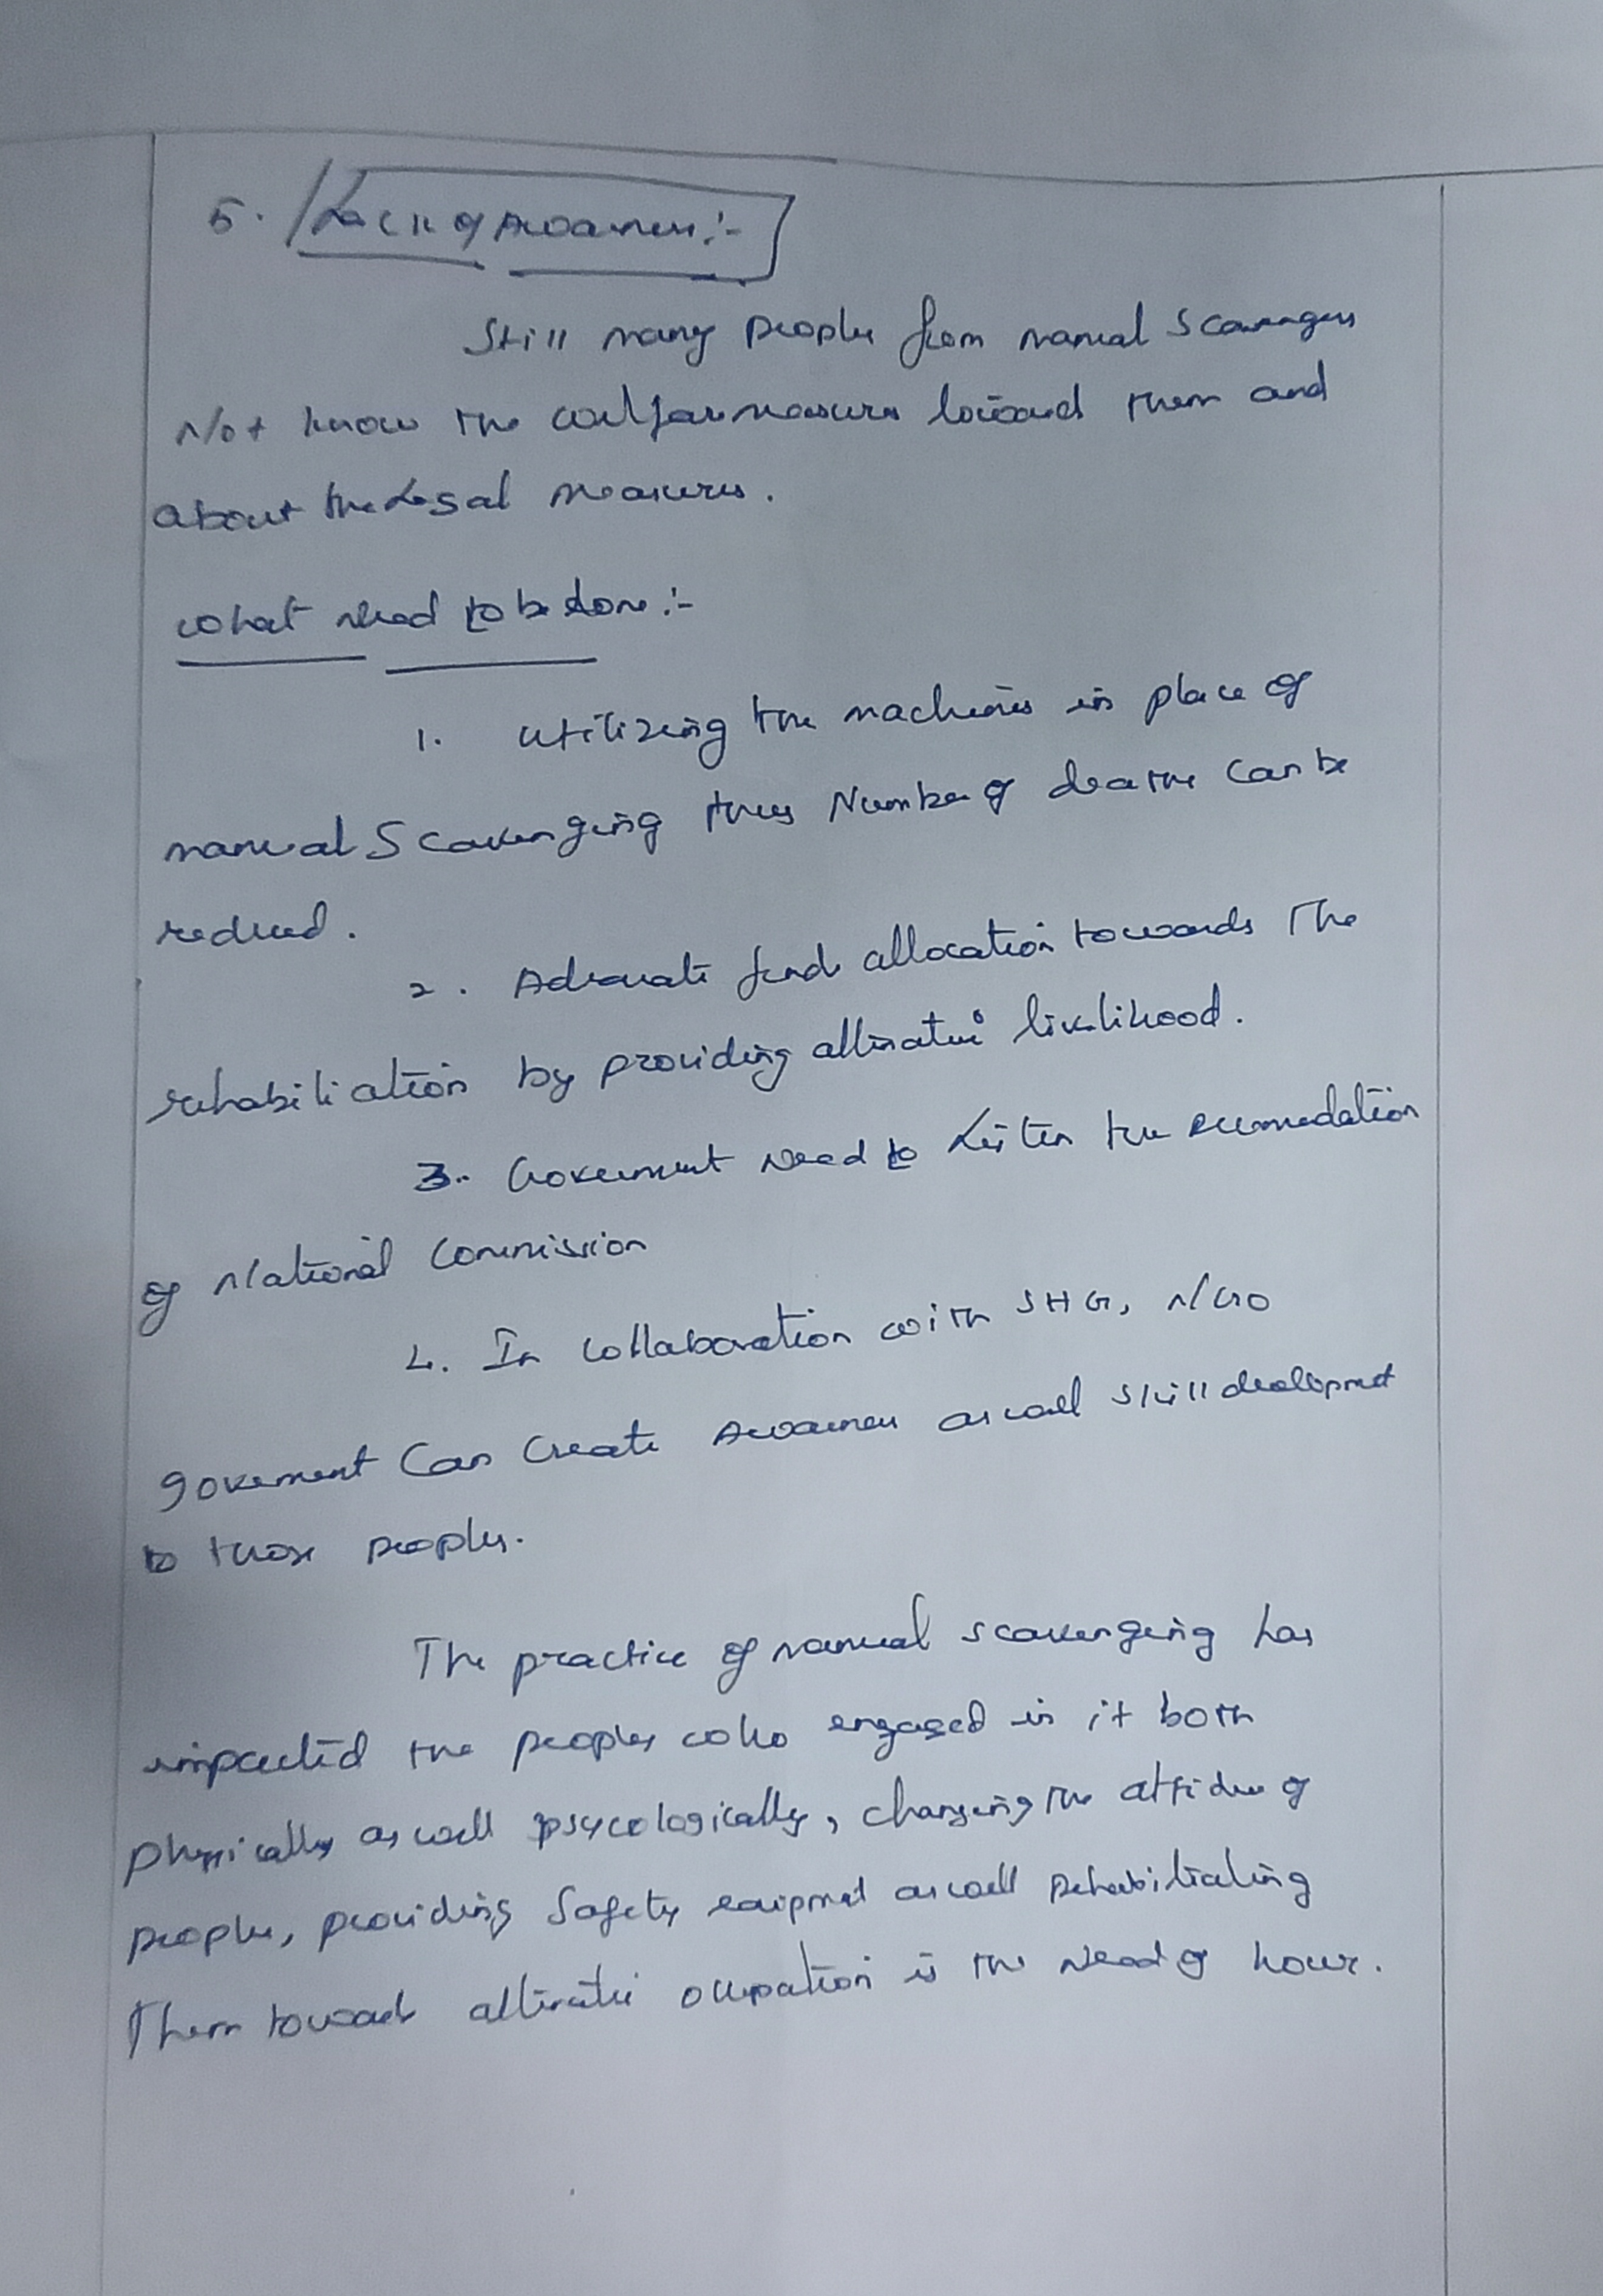 5. Lack of Awarness:-
Still many people from manual Scavengers
Not know the welfare measures toward them and
about the Legal measures.
What need to be done:-
1. Utilizing the machines in place of
manual Scavenging thus Number of deaths can be
reduced.
2. Adequate funds allocation towards The
rehabiliation by providing altirative livelihood.
3. Government need to Listen the recomedation
of National Commission
4. In collaboration with SHG, NGO
government Can Create Awarness as well skill development
to those peoples.
The practice of manual scavenging has
impacted the peoples who engaged in it both
physically as well psycologically, changing the attidue of
people, providing Safety equipment as well rehabilitating
Them towards altirative occupation is the need of hour.